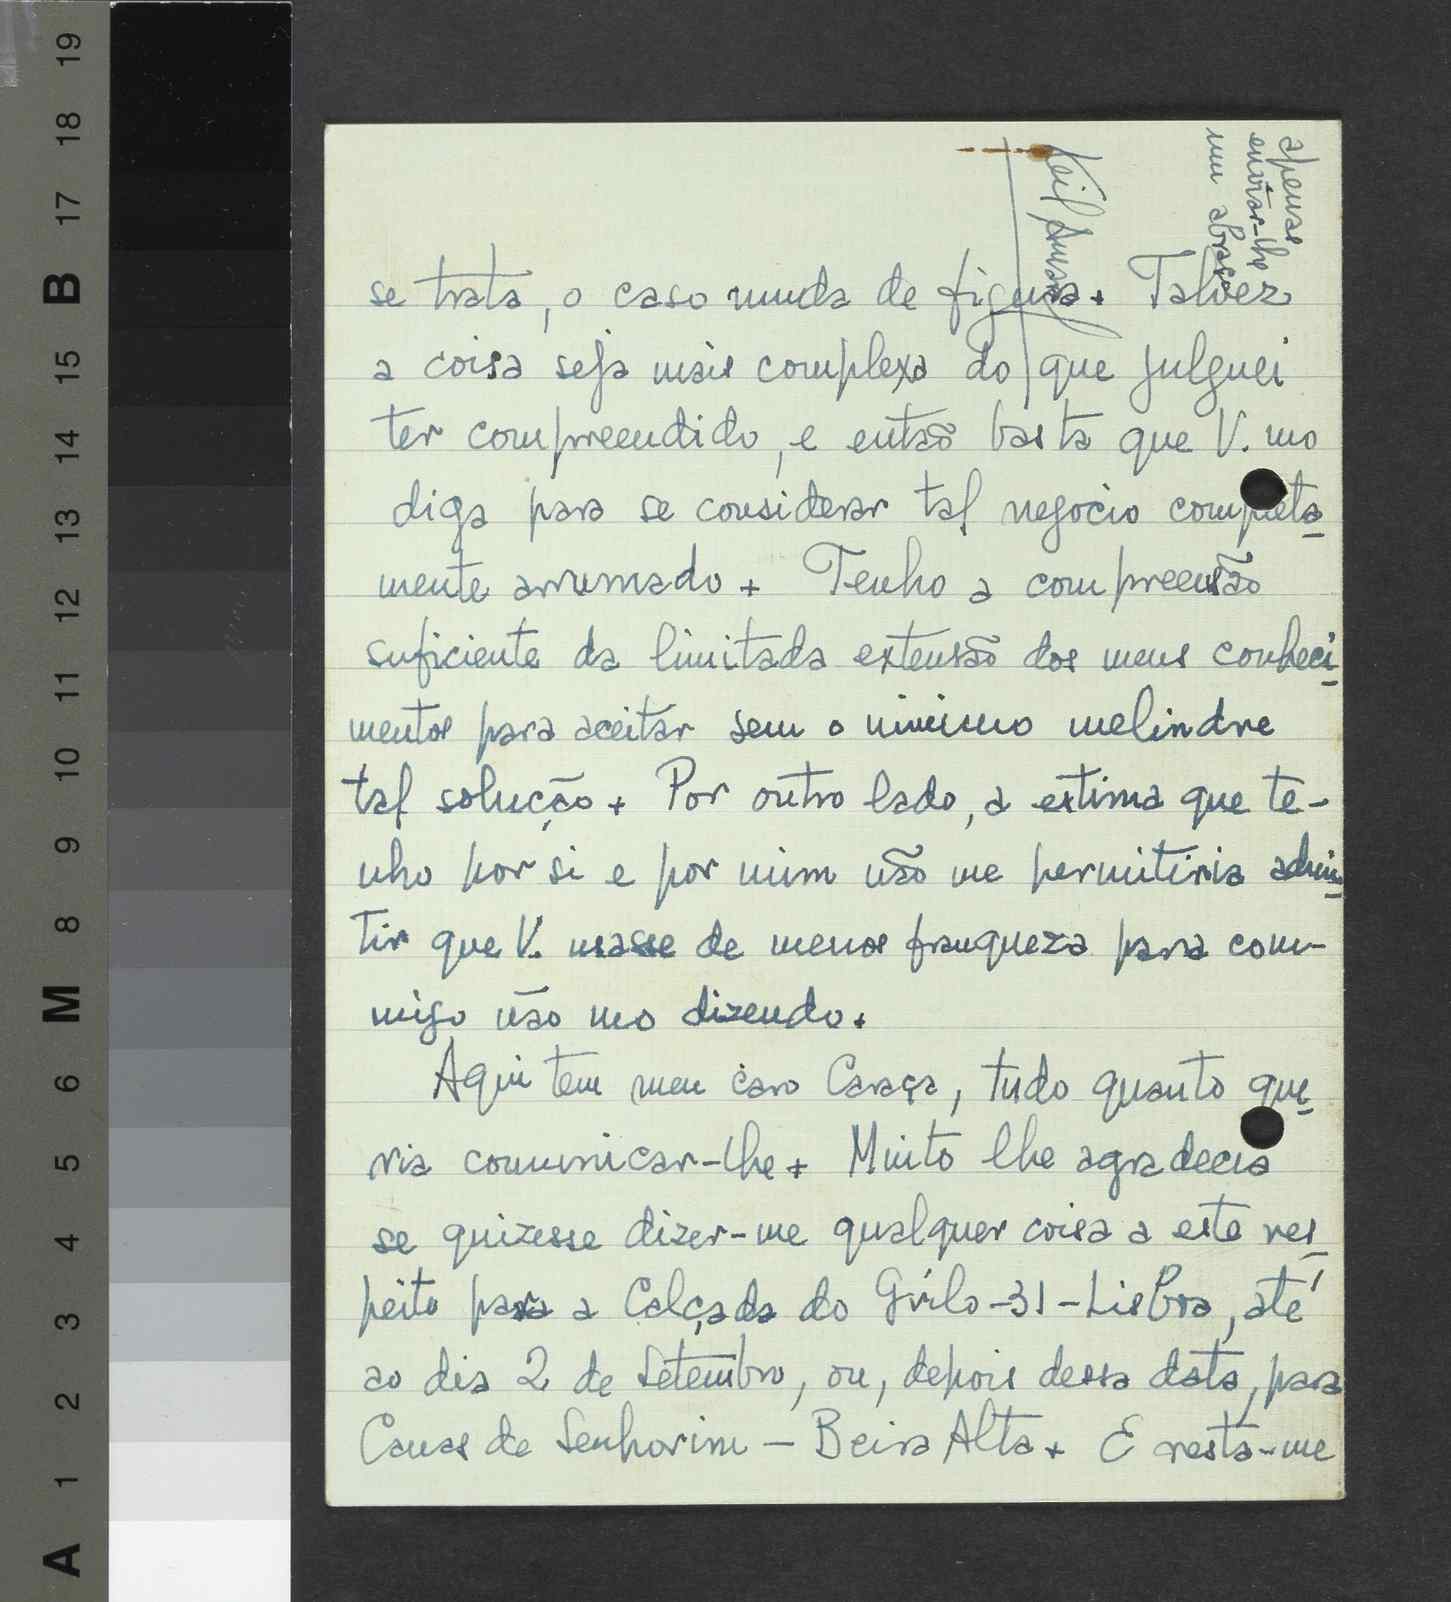 se trata, o caso muda de figura. Talvez
a coisa seja mais complexa do que julguei
ter compreendido, e então basta que V. mo
diga para se considerar tal negocio completa-
mente arrumado. Tenho a compreensão
suficiente da limitada extensão dos meus conheci-
mentos para aceitar sem o minimo melindre
tal solução. Por outro lado, a estima que te-
nho por si e por mim não me permitiria admi-
tir que V. usasse de menos franqueza para com-
migo não mo dizendo.
Aqui tem meu caro Caraça, tudo quanto que-
ria comunicar-lhe. Muito lhe agradecia
se quizesse dizer-me qualquer coisa a este res-
peito para a Calçada do Grilo-31-Lisboa, até
ao dia 2 de Setembro, ou, depois dessa data, para
Canas de Senhorim - Beira Alta. E resta-me
apenas
enviar-lhe
um abraço
Keil Amaral
A 1 2 3 4 5 6 M 8 9 10 11 12 13 14 15 B 17 18 19